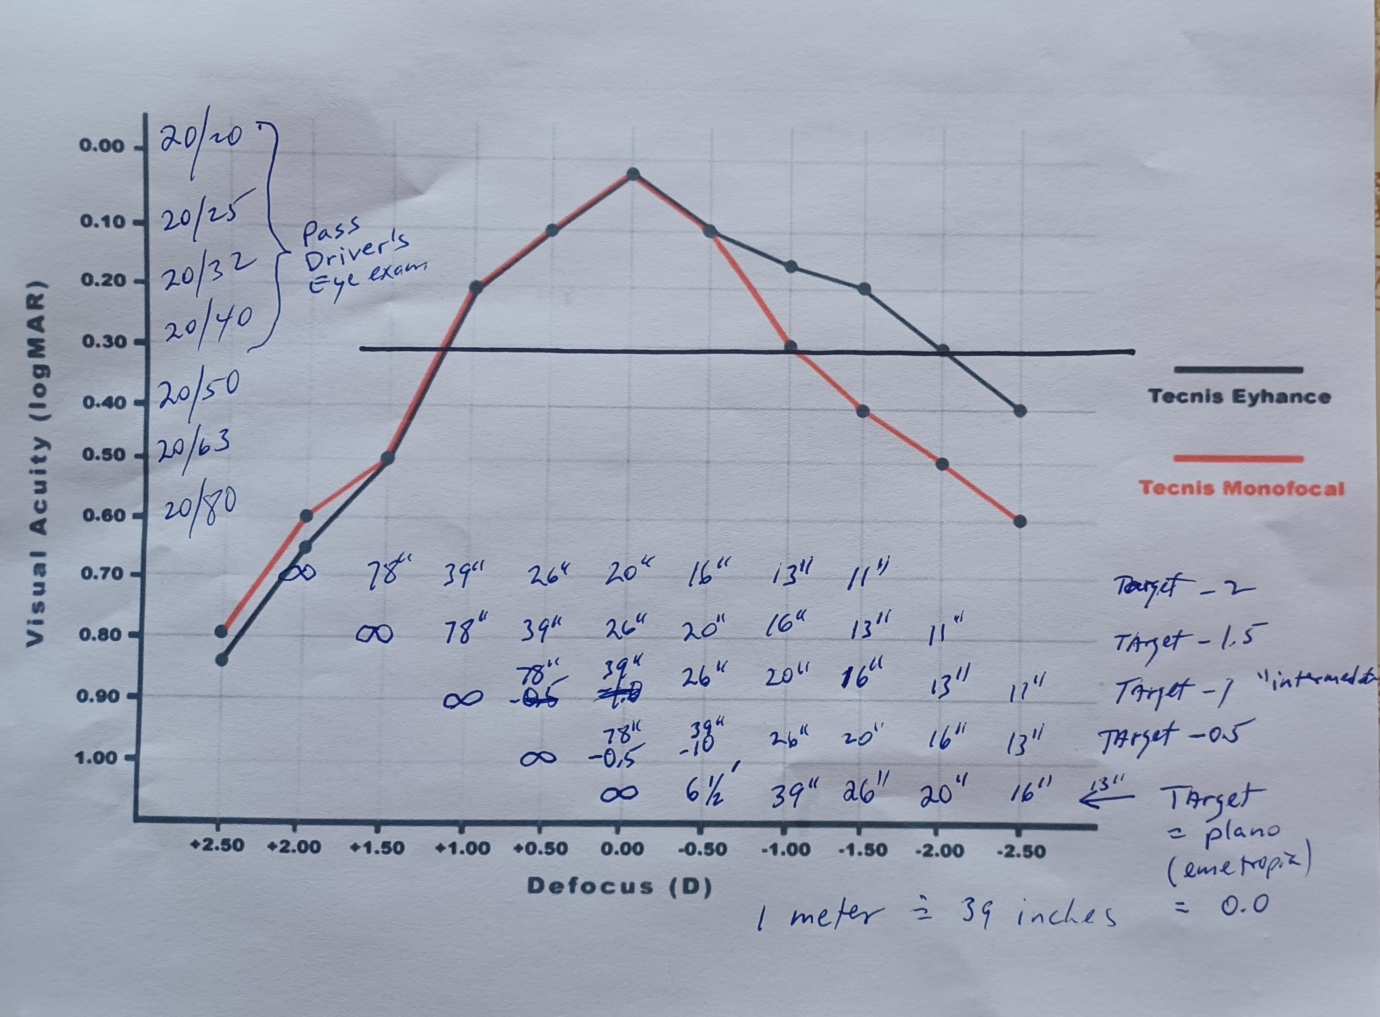 0.00 20/20
0.10 20/25
Pass
Driver's
Eye exam
0.20 20/32
0.30 20/40
0.40 20/50
0.50 20/63
0.60 20/80
0.70
0.80
0.90
1.00
Visual Acuity (logMAR)
Tecnis Eyhance
Tecnis Monofocal
∞ 78" 39" 26" 20" 16" 13" 11" Target -2
∞ 78" 39" 26" 20" 16" 13" 11" TArget -1.5
78" 39" 26" 20" 16" 13" 11" TArget -1 "intermediate
∞ -0.5 -1.0
78" 39" 26" 20" 16" 13" TArget -0.5
∞ -0.5 -10
∞ 6½' 39" 26" 20" 16" 13" TArget
= plano
(emetropia)
= 0.0
+2.50 +2.00 +1.50 +1.00 +0.50 0.00 -0.50 -1.00 -1.50 -2.00 -2.50
Defocus (D)
1 meter ≐ 39 inches